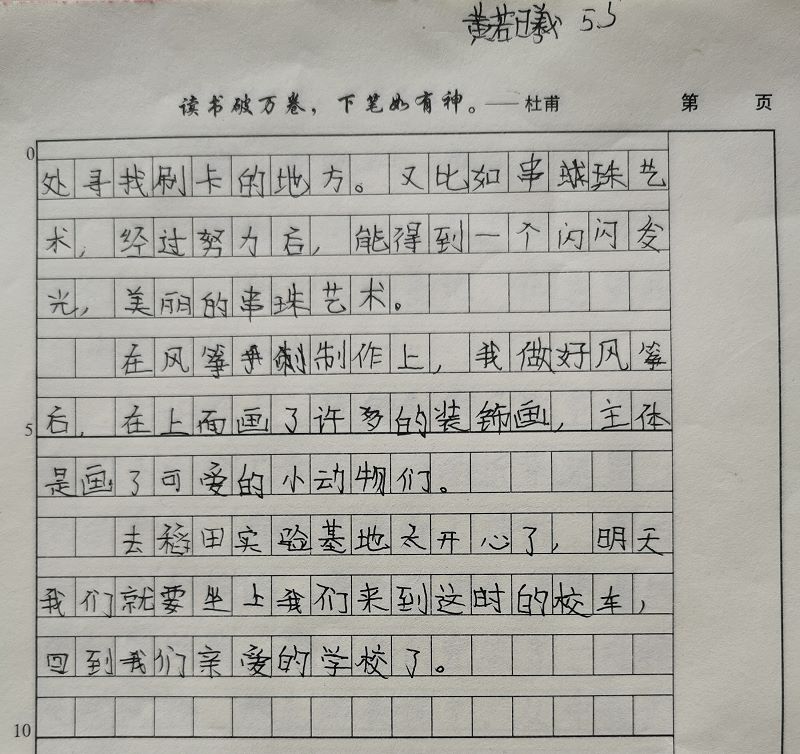 黄若曦 5.5
读书破万卷，下笔如有神。——杜甫 第 页
0
处寻找刷卡的地方。又比如串球珠艺
术，经过努力后，能得到一个闪闪发
光，美丽的串珠艺术。
在风筝手制制作上，我做好风筝
5
后，在上面画了许多的装饰画，主体
是画了可爱的小动物们。
去稻田实验基地太开心了，明天
我们就要坐上我们来到这时的校车，
回到我们亲爱的学校了。
10